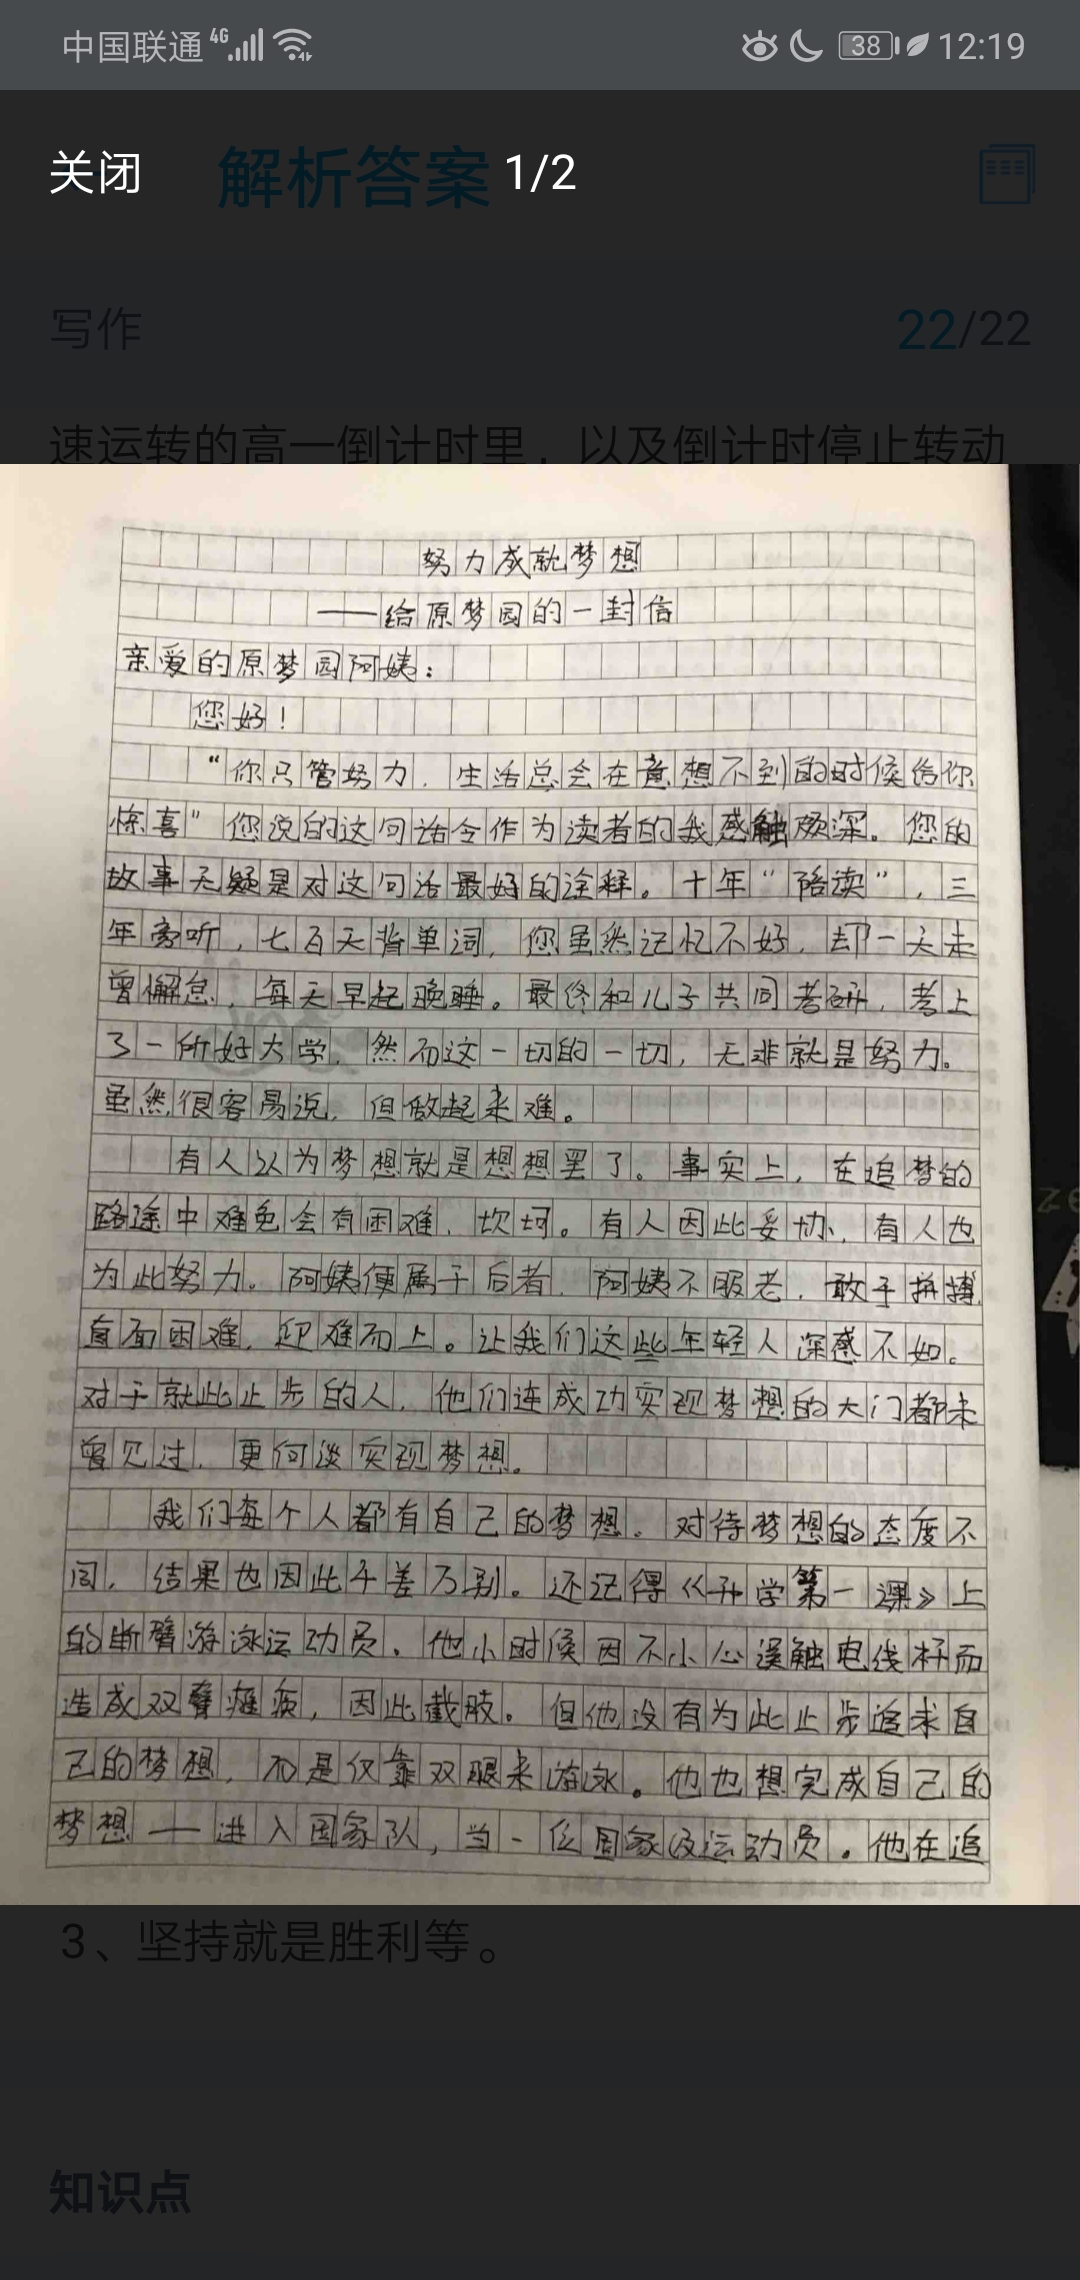 中国联通 4G 38 12:19
关闭 解析答案 1/2
写作 22/22
速运转的高一倒计时里，以及倒计时停止转动
努力成就梦想
——给原梦园的一封信
亲爱的原梦园阿姨：
您好！
“你只管努力，生活总会在意想不到的时候给你
惊喜”您说的这句话令作为读者的我感触颇深。您的
故事无疑是对这句话最好的诠释。十年“陪读”，三
年旁听，七百天背单词，您虽然记忆不好，却一天未
曾懈怠，每天早起晚睡。最终和儿子共同考研，考上
了一所好大学，然而这一切的一切，无非就是努力。
虽然很容易说，但做起来难。
有人以为梦想就是想想罢了。事实上，在追梦的
路途中难免会有困难、坎坷。有人因此妥协，有人也
为此努力。阿姨便属于后者，阿姨不服老，敢于拼搏，
直面困难，迎难而上。让我们这些年轻人深感不如。
对于就此止步的人，他们连成功实现梦想的大门都未
曾见过，更何谈实现梦想。
我们每个人都有自己的梦想。对待梦想的态度不
同，结果也因此千差万别。还记得《开学第一课》上
的断臂游泳运动员，他小时候因不小心误触电线杆而
造成双臂瘫痪，因此截肢。但他没有为此止步追求自
己的梦想，而是仅靠双腿来游泳。他也想完成自己的
梦想——进入国家队，当一位国家级运动员。他在追
3、坚持就是胜利等。
知识点